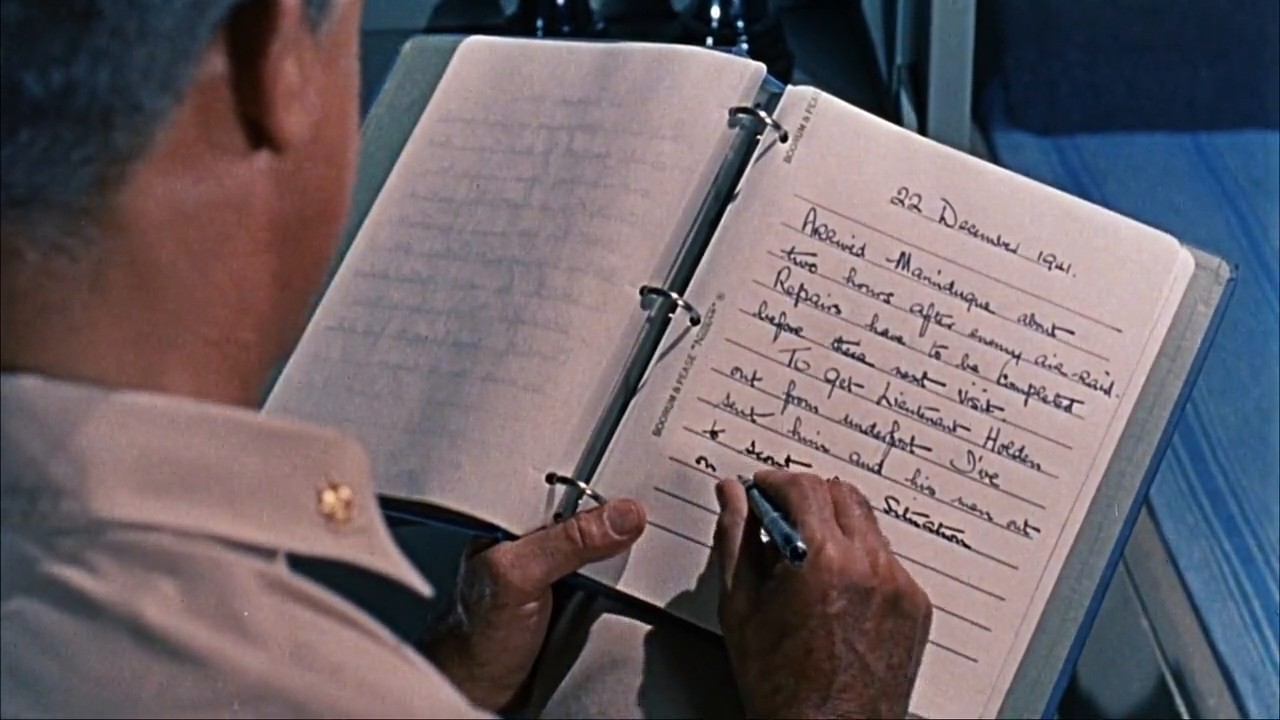 BOORUM & PEASE
22 December 1941.
Arrived Marinduque about
two hours after enemy air-raid.
Repairs have to be completed
before their next visit.
To get Lieutenant Holden
out from underfoot I've
sent him and his men out
to scout Situation
on
BOORUM & PEASE "NOBLOT" ®